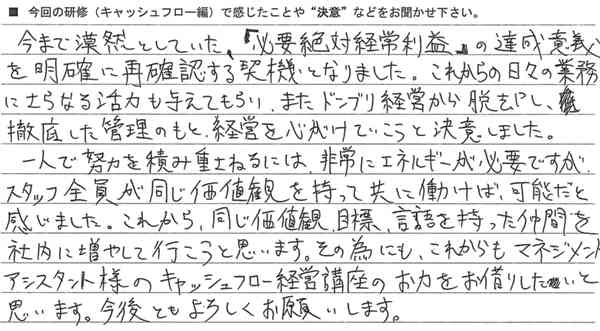 ■ 今回の研修（キャッシュフロー編）で感じたことや“決意”などをお聞かせ下さい。
今まで漠然としていた、『必要絶対経常利益』の達成意義
を明確に再確認する契機となりました。これからの日々の業務
にさらなる活力も与えてもらい、またドンブリ経営から脱きゃくし、
徹底した管理のもと、経営を心がけていこうと決意しました。
一人で努力を積み重ねるには、非常にエネルギーが必要ですが、
スタッフ全員が同じ価値観を持って共に働けば、可能だと
感じました。これから、同じ価値観、目標、言語を持った仲間を
社内に増やして行こうと思います。その為にも、これからもマネジメント
アシスタント様のキャッシュフロー経営講座のお力をお借りしたいと
思います。今後ともよろしくお願いします。